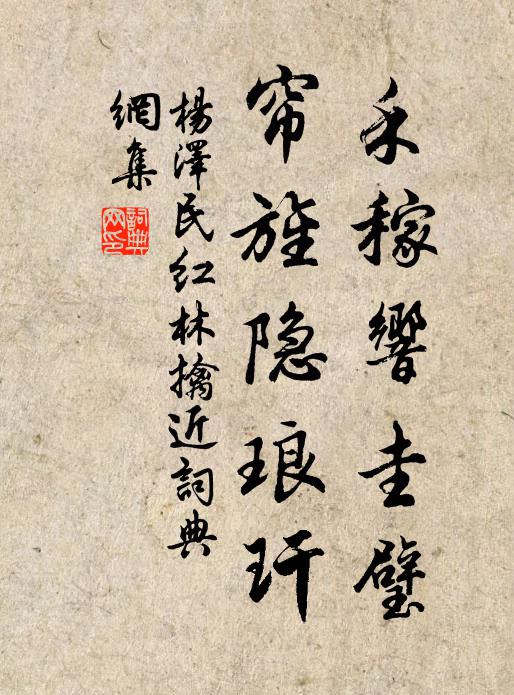 禾稼響圭璧
帘旌隐琅玕
楊澤民红林擒近詞典
網集
詞典網印